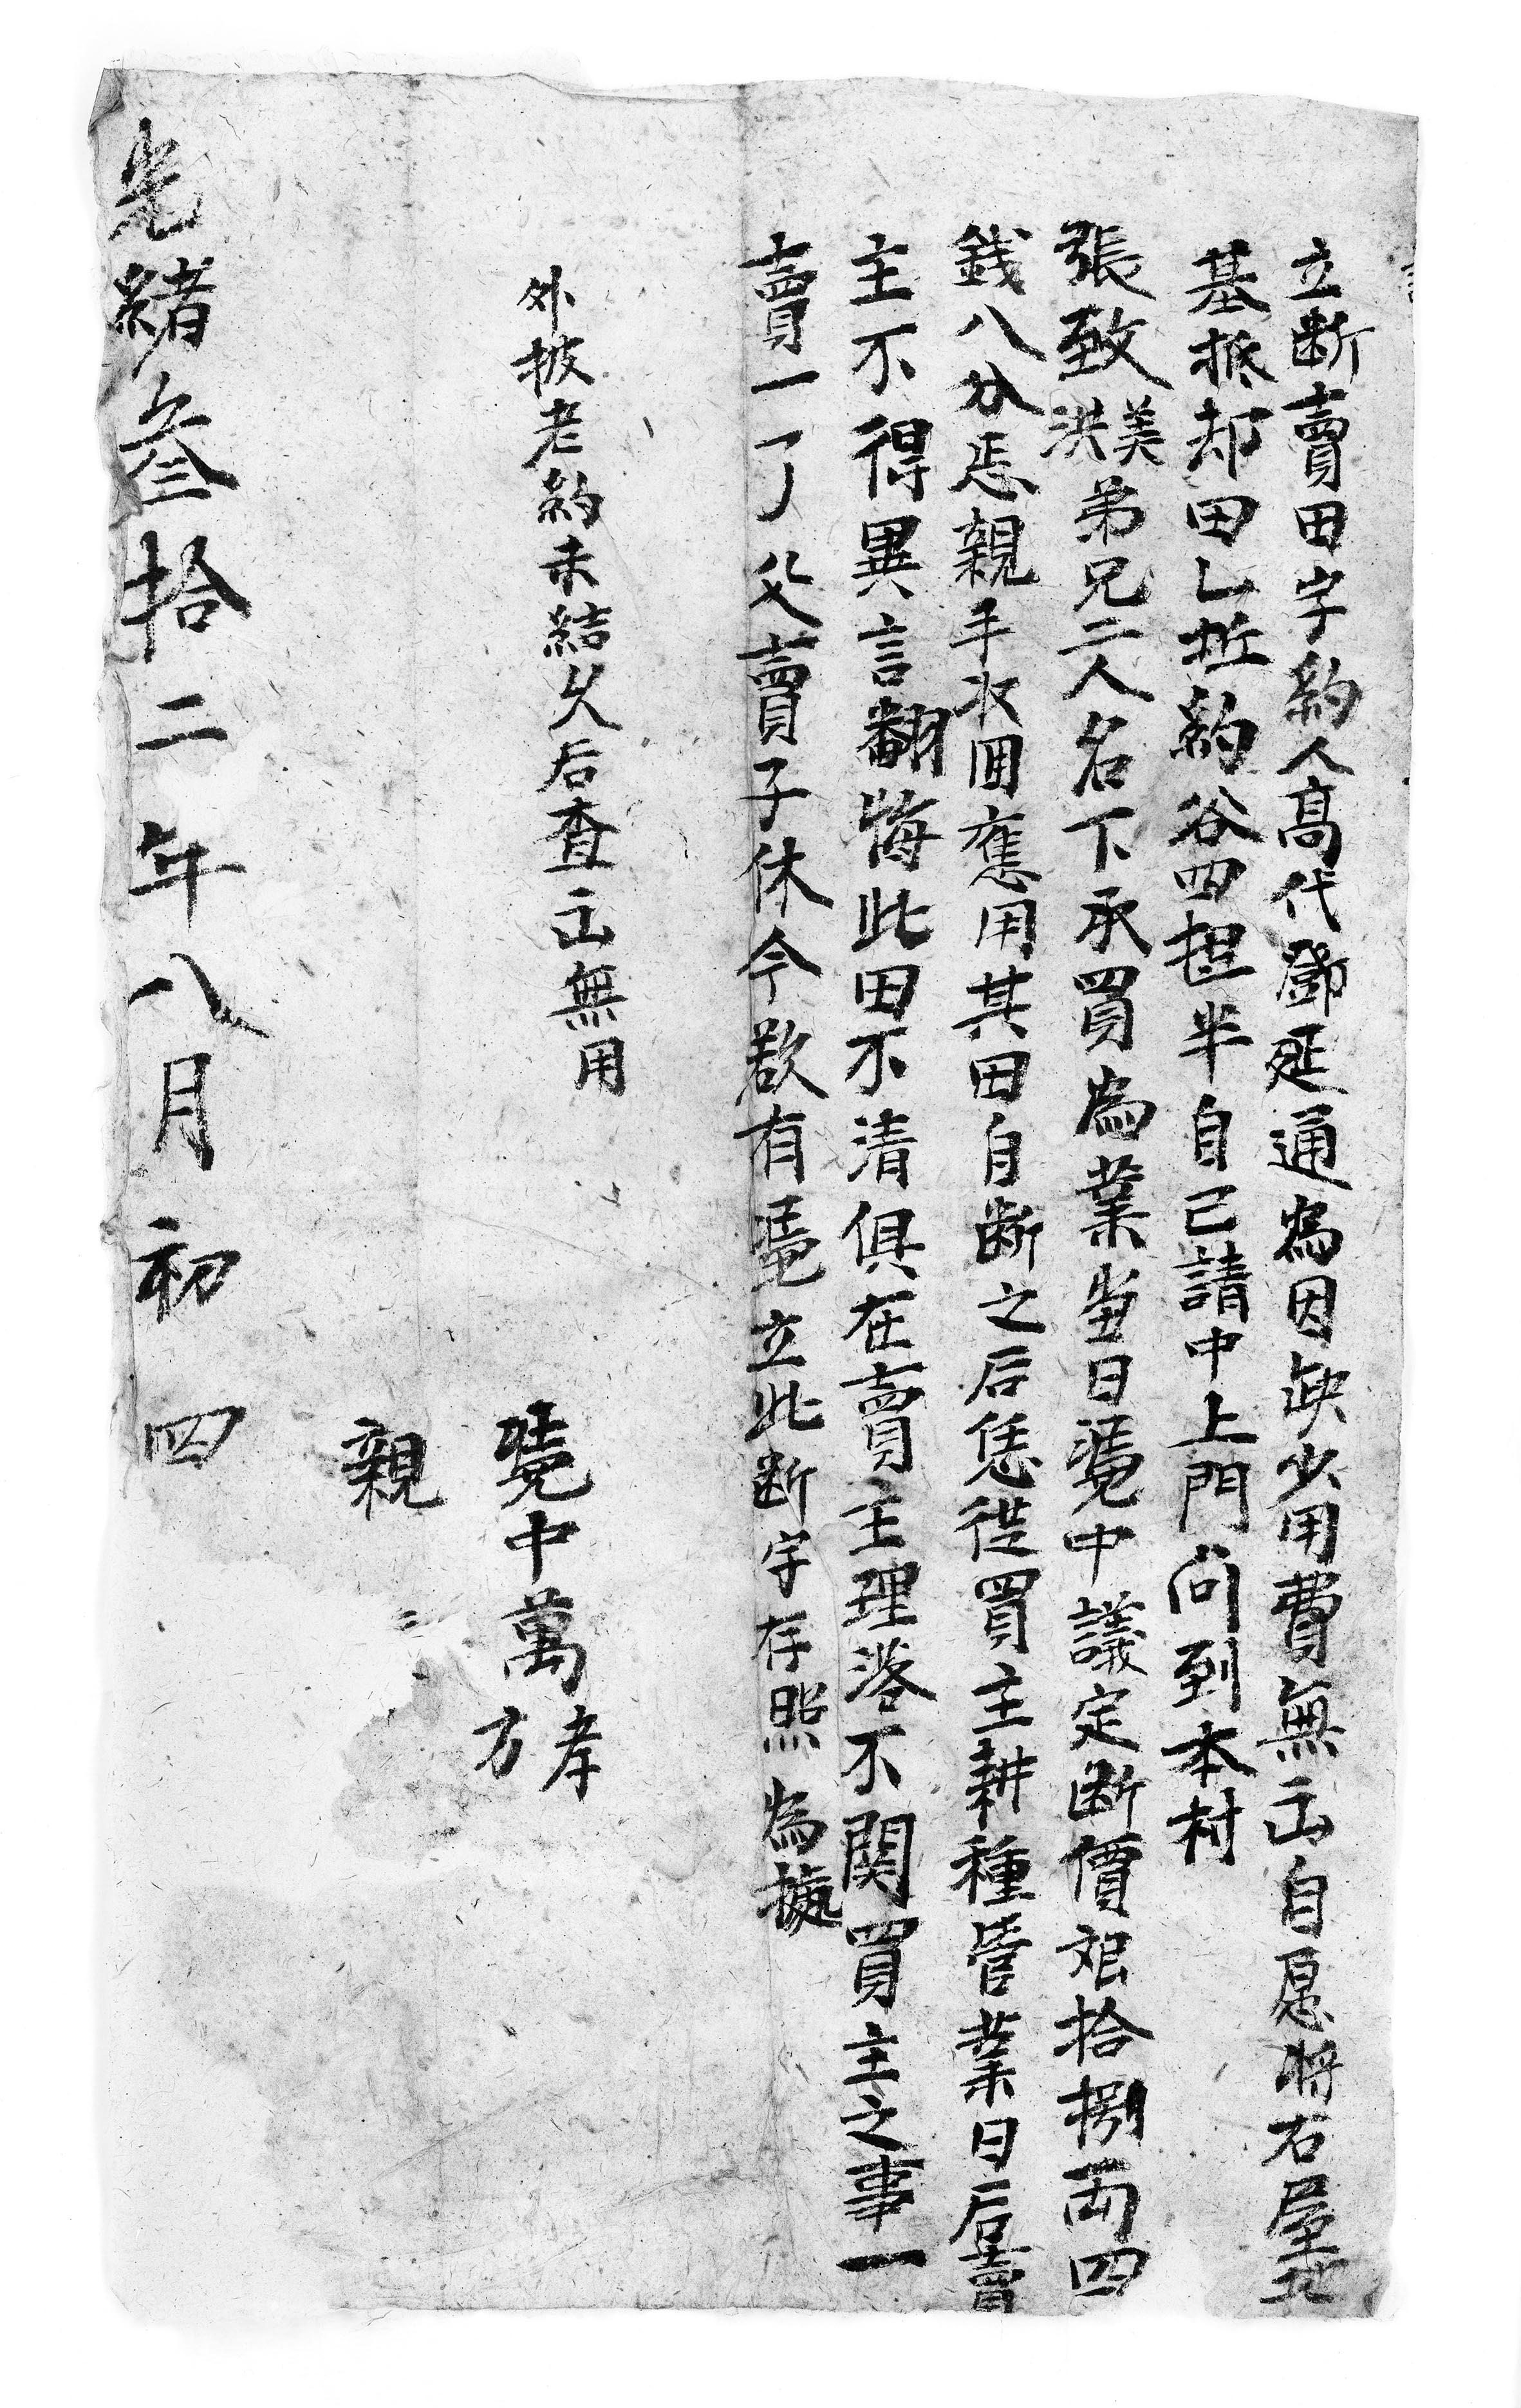 立断賣田字約人高代鄧延通為因缺少用費無出自愿将右屋地
基抵却田乚坵約谷四担半自己請中上門问到本村
張致美洪弟兄二人名下承買為業当日凴中議定断價艮拾捌両四
銭八分恁親手收囬應用其田自断之后恁從買主耕種管業日后賣
主不得異言翻悔此田不清俱在賣主理落不関買主之事一
賣一了父賣子休今欲有凴立此断字存照為據
外披老約未結父后查出無用
凴中萬孝方
親
光緒叁拾二年八月初四